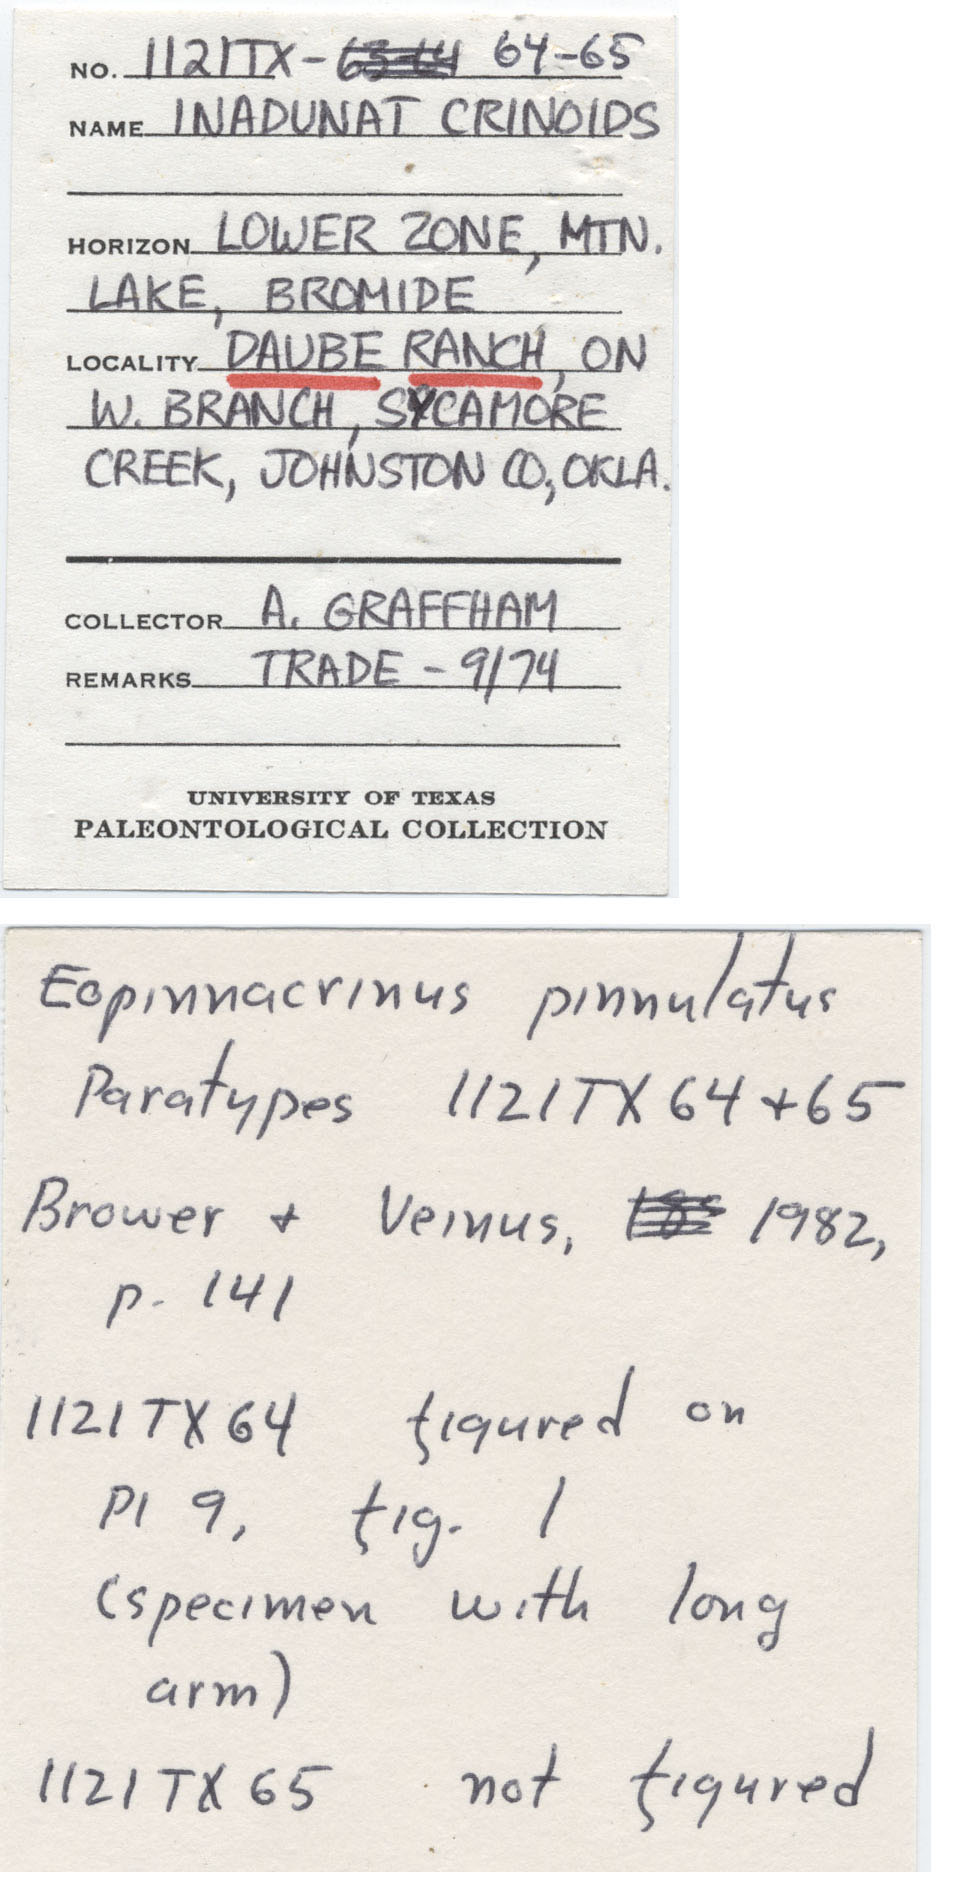 NO. 1121TX- 64-65
NAME INADUNAT CRINOIDS
HORIZON LOWER ZONE, MTN.
LAKE, BROMIDE
LOCALITY DAUBE RANCH, ON
W. BRANCH, SYCAMORE
CREEK, JOHNSTON CO, OKLA.
COLLECTOR A. GRAFFHAM
REMARKS TRADE - 9/74
UNIVERSITY OF TEXAS
PALEONTOLOGICAL COLLECTION
Eopinnacrinus pinnulatus
Paratypes 1121TX 64 + 65
Brower + Veinus, 1982,
p. 141
1121TX 64 figured on
Pl 9, fig. 1
(specimen with long
arm)
1121TX 65 not figured